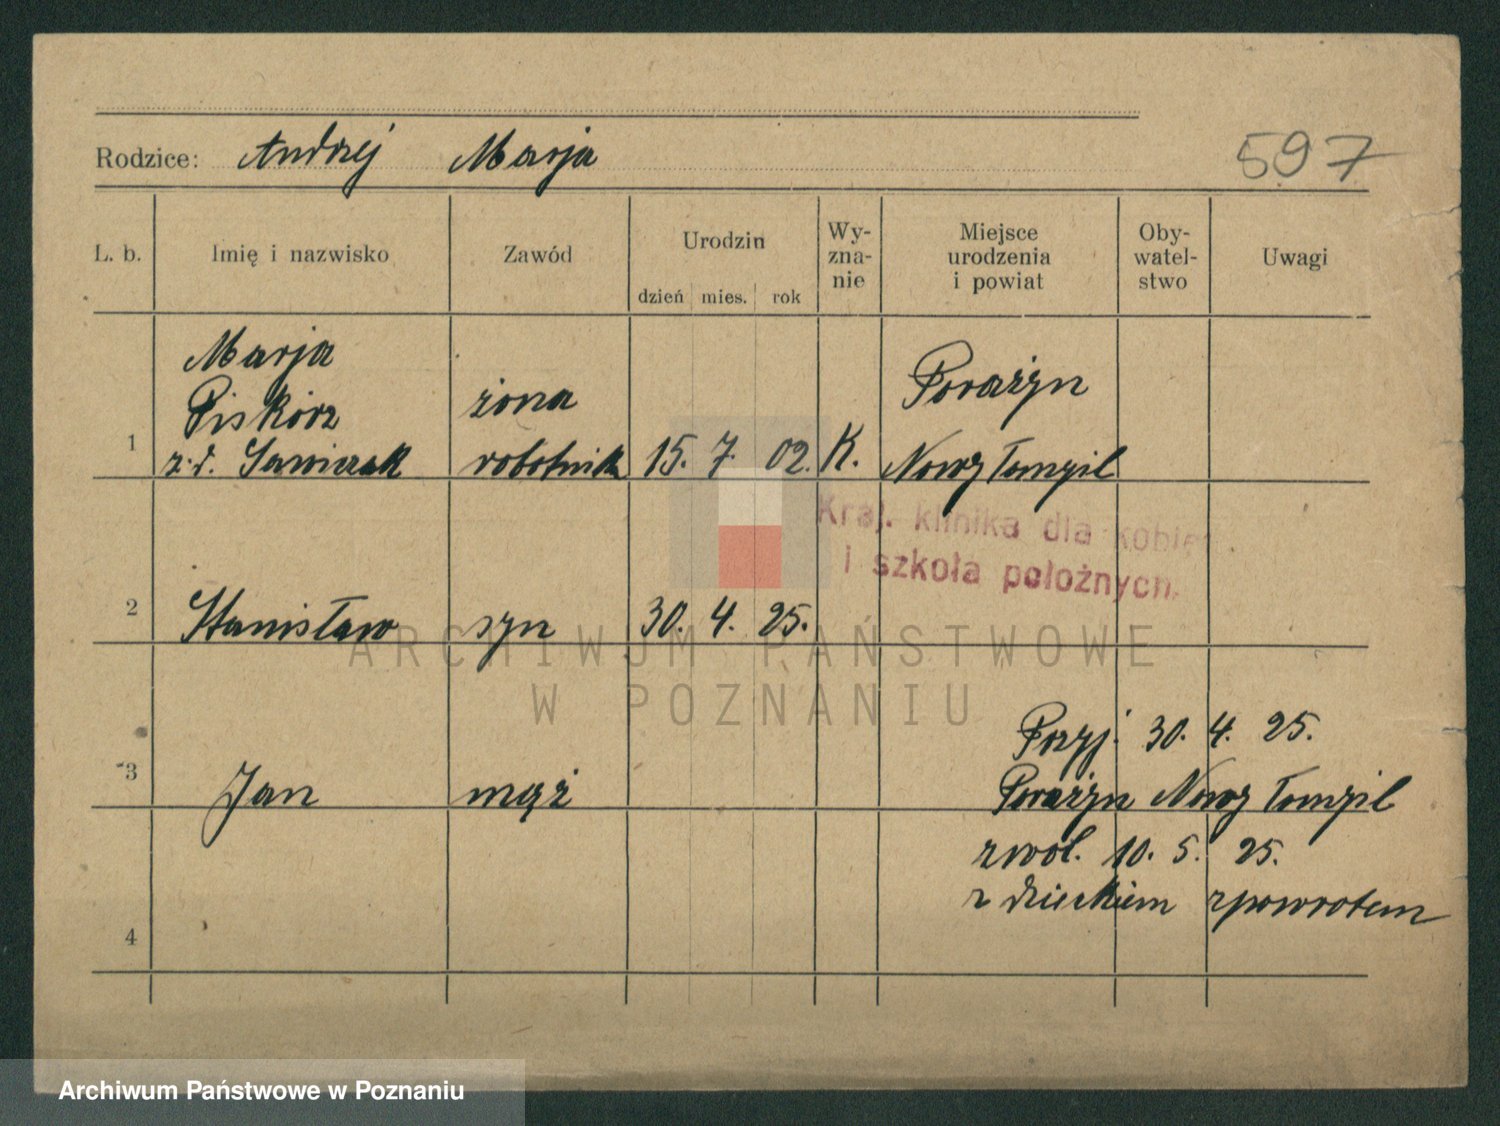 Rodzice: Andrzej Marja
597
L. b. Imię i nazwisko Zawód Urodzin dzień mies. rok Wy-zna-nie Miejsce urodzenia i powiat Oby-watel-stwo Uwagi
Marja
Piskorz żona Porażyn
1 z. d. Sawiczak robotnik 15. 7. 02. K. Nowy Tomyśl
Kraj. klinika dla kobiet
i szkoła położnych.
2 Stanisław syn 30. 4. 25.
ARCHIWUM PAŃSTWOWE
W POZNANIU
Przyj. 30. 4. 25.
3 Jan mąż Porażyn Nowy Tomyśl
zwol. 10. 5. 25.
z dzieckiem zpowrotem
4
Archiwum Państwowe w Poznaniu